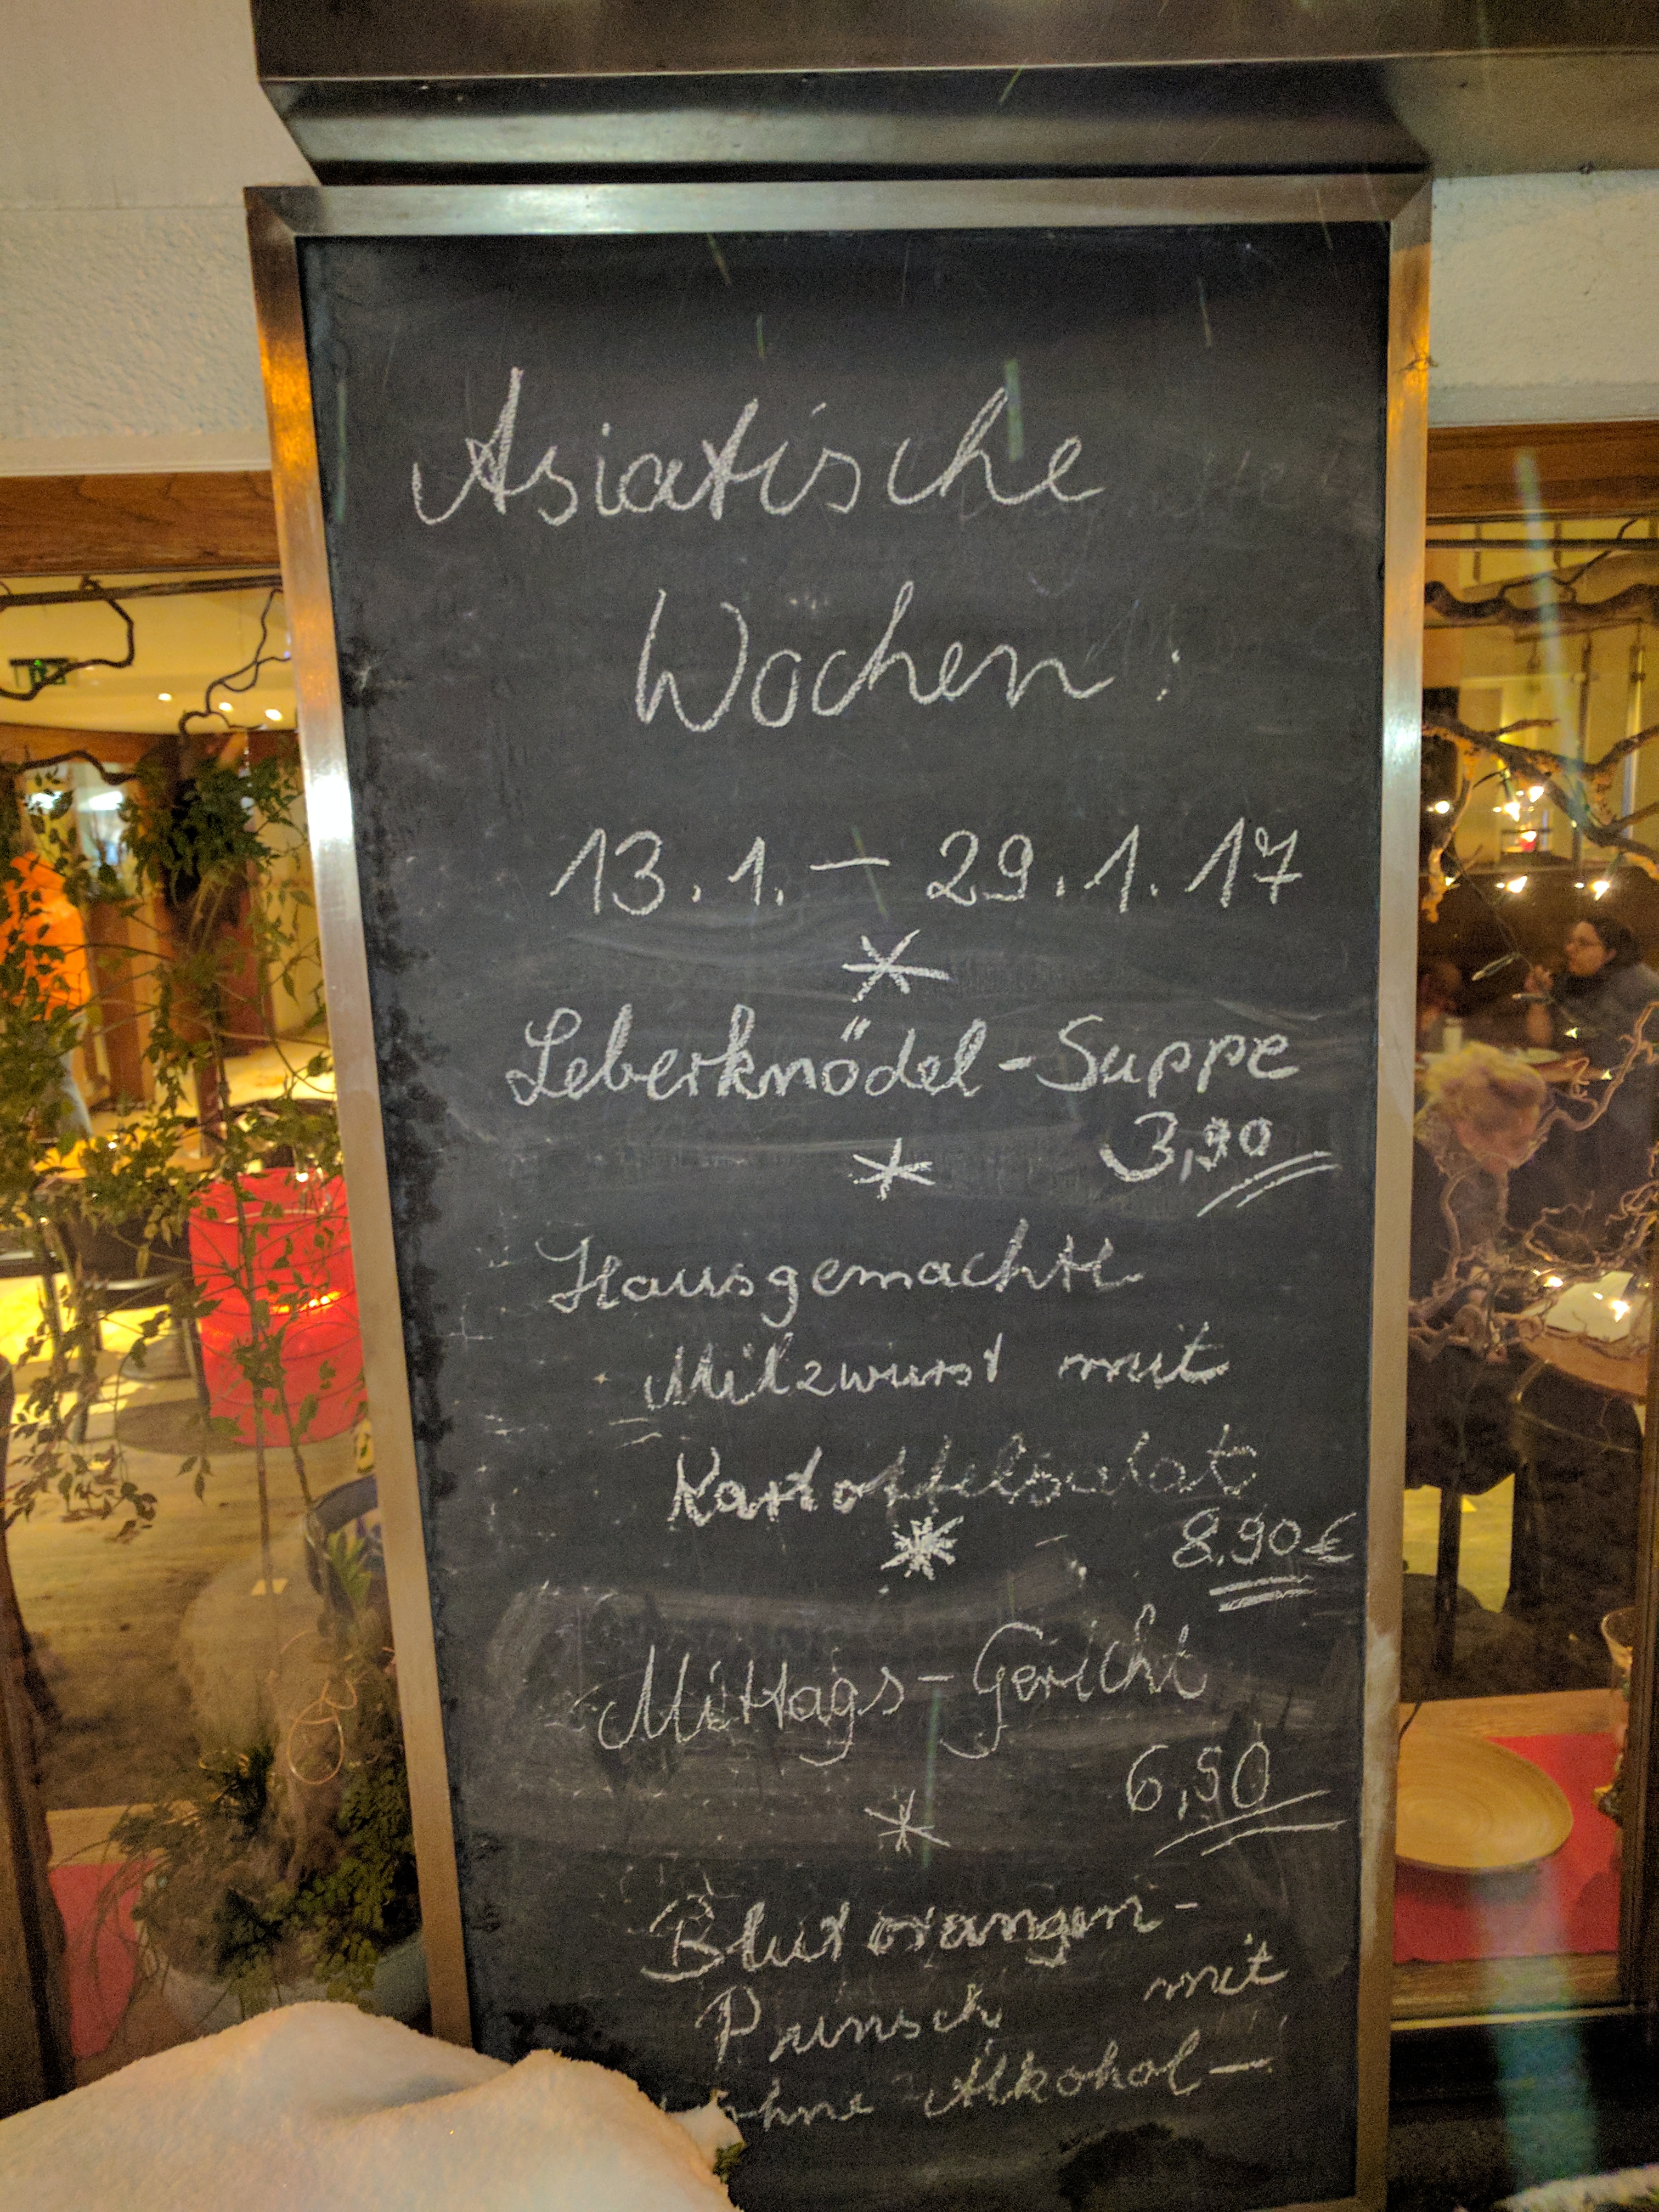 Asiatische
Wochen:
13.1. – 29.1.17
Leberknödel-Suppe
3,90
Hausgemachte
Milzwurst mit
Kartoffelsalat
8.90€
Mittags-Gericht
6,50
Blutorangen-
Punsch mit
ohne Alkohol–